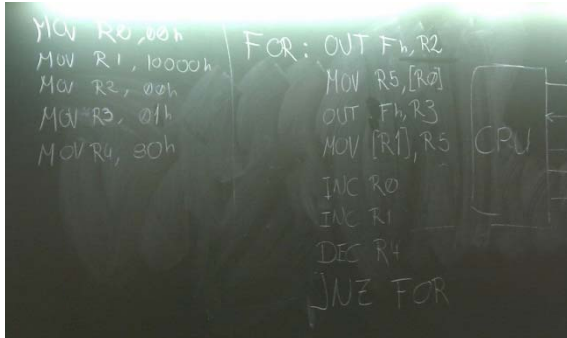 MOV R0,00h
MOV R1, 10000h
MOV R2, 00h
MOV R3, 01h
MOV R4, 80h
FOR: OUT Fh,R2
MOV R5,[R0]
OUT Fh,R3
MOV [R1],R5
INC R0
INC R1
DEC R4
JNZ FOR
CPU